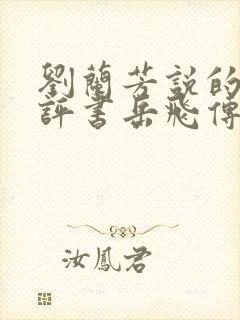 劉蘭芳説的
評書岳飛傳
汝鳳君